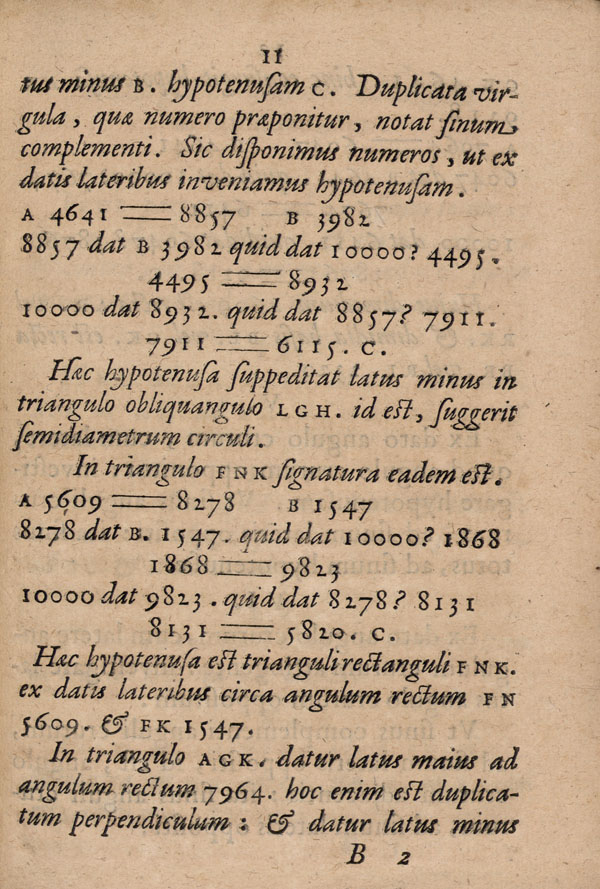 11
tus minus B. hypotenuſam C. Duplicata vir-
gula, quæ numero præponitur, notat ſinum
complementi. Sic diſponimus numeros, ut ex
datis lateribus inveniamus hypotenuſam.
A 4641 == 8857 B 3982
8857 dat B 3982 quid dat 10000? 4495.
4495 == 8932
10000 dat 8932. quid dat 8857? 7911.
7911 == 6115. C.
Hæc hypotenuſa ſuppeditat latus minus in
triangulo obliquangulo LGH. id eſt, ſuggerit
ſemidiametrum circuli.
In triangulo FNK ſignatura eadem eſt.
A 5609 == 8278 B 1547
8278 dat B. 1547. quid dat 10000? 1868
1868 == 9823
10000 dat 9823. quid dat 8278? 8131
8131 == 5820. C.
Hæc hypotenuſa eſt trianguli rectanguli FNK.
ex datis lateribus circa angulum rectum FN
5609. & FK 1547.
In triangulo AGK. datur latus maius ad
angulum rectum 7964. hoc enim eſt duplica-
tum perpendiculum: & datur latus minus
B 2